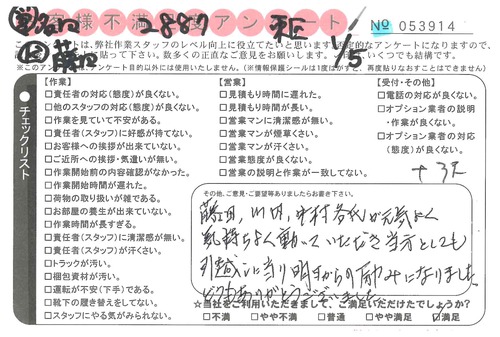 お客様不満足度アンケート
2887
1/5
№ 053914
このアンケートは、弊社作業スタッフのレベル向上に役立てたいと思います
チェックリスト
【作業】
□責任者の対応(態度)が良くない。
□他のスタッフの対応(態度)が良くない。
□作業を見ていて不安がある。
□責任者(スタッフ)に好感が持てない。
□お客様への挨拶が出来ていない。
□ご近所への挨拶・気遣いが無い。
□作業開始前の内容確認がなかった。
□作業開始時間が遅れた。
□荷物の取り扱いが雑である。
□お部屋の養生が出来ていない。
□作業時間が長すぎる。
□責任者(スタッフ)に清潔感が無い。
□責任者(スタッフ)が汗くさい。
□トラックが汚い。
□梱包資材が汚い。
□運転が不安(下手)である。
□靴下の履き替えをしてない。
□スタッフにやる気がみられない。
【営業】
□見積もり時間に遅れた。
□見積もり時間が長い。
□営業マンに清潔感が無い。
□営業マンが煙草くさい。
□営業マンが汗くさい。
□営業態度が良くない。
□営業の説明と作業が一致してない。
【受付・その他】
□電話の対応が良くない。
□オプション業者の説明
・作業が良くない。
□オプション業者の対応
(態度)が良くない。
+3点
その他、ご意見・ご要望等ありましたらお書き下さい。
藤田,川内,中村各氏が元気よく
気持ちよく動いていただき当方としても
引越しに当り明日からの励みになりました。
どうもありがとうございました
☆当社をご利用いただきまして、ご満足いただけたでしょうか?
□不満 □やや不満 □普通 □やや満足 ☑満足